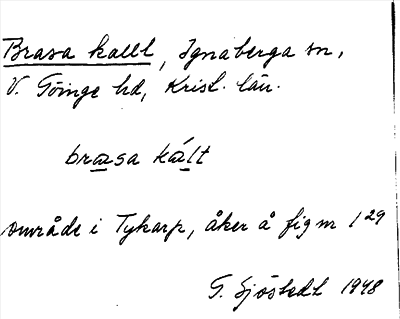 Brasa kallt, Ignaberga sn,
V. Göinge hd, Krist. län.
brasa kált
område i Tykarp, åker å fig nr 1²⁹
G. Sjöstedt 1948